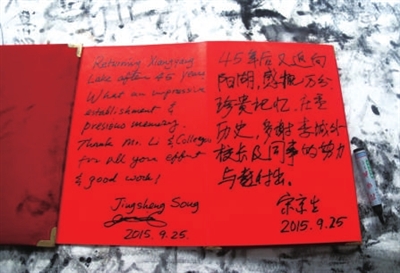 Returning Xiangyang
Lake after 45 years
What an impressive
establishment &
precious memory.
Thank Mr. Li & Colleges
for all your effort
& good work!
Jingsheng Song
2015. 9.25.
45年后又返向
阳湖,感慨万分
珍贵记忆,
历史,多谢李城外
校长及同事的努力
与付出。
宋京生
2015.9.25